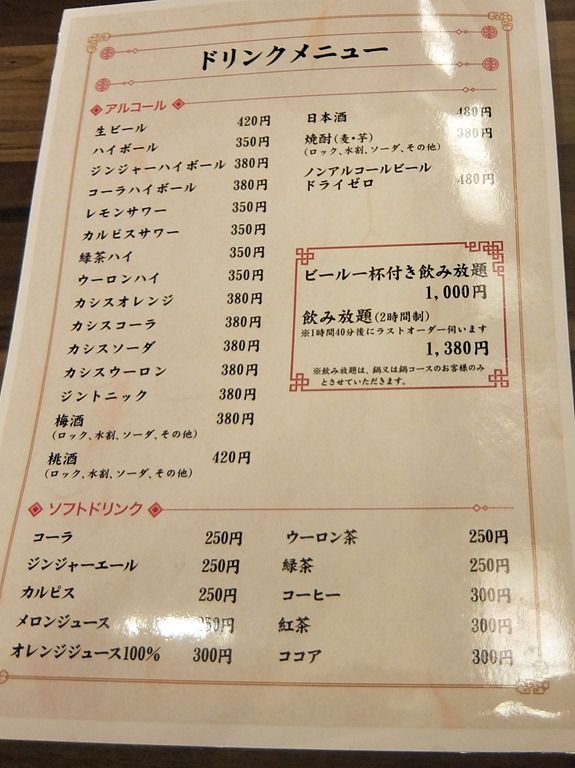 ドリンクメニュー
アルコール
生ビール 420円
ハイボール 350円
ジンジャーハイボール 380円
コーラハイボール 380円
レモンサワー 350円
カルピスサワー 350円
緑茶ハイ 350円
ウーロンハイ 350円
カシスオレンジ 380円
カシスコーラ 380円
カシスソーダ 380円
カシスウーロン 380円
ジントニック 380円
梅酒 380円
(ロック、水割、ソーダ、その他)
桃酒 420円
(ロック、水割、ソーダ、その他)
日本酒 480円
焼酎(麦・芋) 380円
(ロック、水割、ソーダ、その他)
ノンアルコールビール
ドライゼロ 480円
ビール一杯付き飲み放題
1,000円
飲み放題(2時間制)
※1時間40分後にラストオーダー伺います
1,380円
※飲み放題は、鍋又は鍋コースのお客様のみ
とさせていただきます。
ソフトドリンク
コーラ 250円
ジンジャーエール 250円
カルピス 250円
メロンジュース 円
オレンジジュース100% 300円
ウーロン茶 250円
緑茶 250円
コーヒー 300円
紅茶 300円
ココア 300円